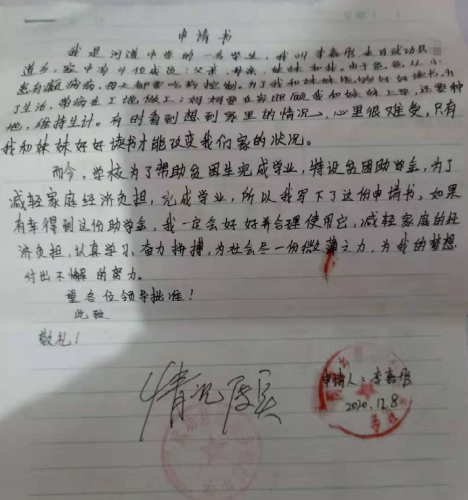 申请书
我是河道中学的一名学生,我叫李嘉彤,来自
道乡,家中有4位成员:父亲、母亲、妹妹和我。由于爸爸从小
患有癫痫病,每天都要吃药控制,为了我和妹妹能够好好读书,为
了生活,带病在工地做工;妈妈要在家照顾我和妹妹上学,还要种
地,维持生计。有时看到想到家里的情况,心里很难受,只有
我和妹妹好好读书才能改变我们家的状况。
而今,学校为了帮助贫困生完成学业,特设贫困助学金,为了
减轻家庭经济负担,完成学业,所以我写下了这份申请书,如果
有幸得到这份助学金,我一定会好好并合理使用它,减轻家庭的经
济负担,认真学习,奋力拼搏,为社会尽一份微薄之力,为我的梦想
付出不懈的努力。
望各位领导批准!
此致
敬礼!
情况属实
申请人:李嘉彤
2020.12.8